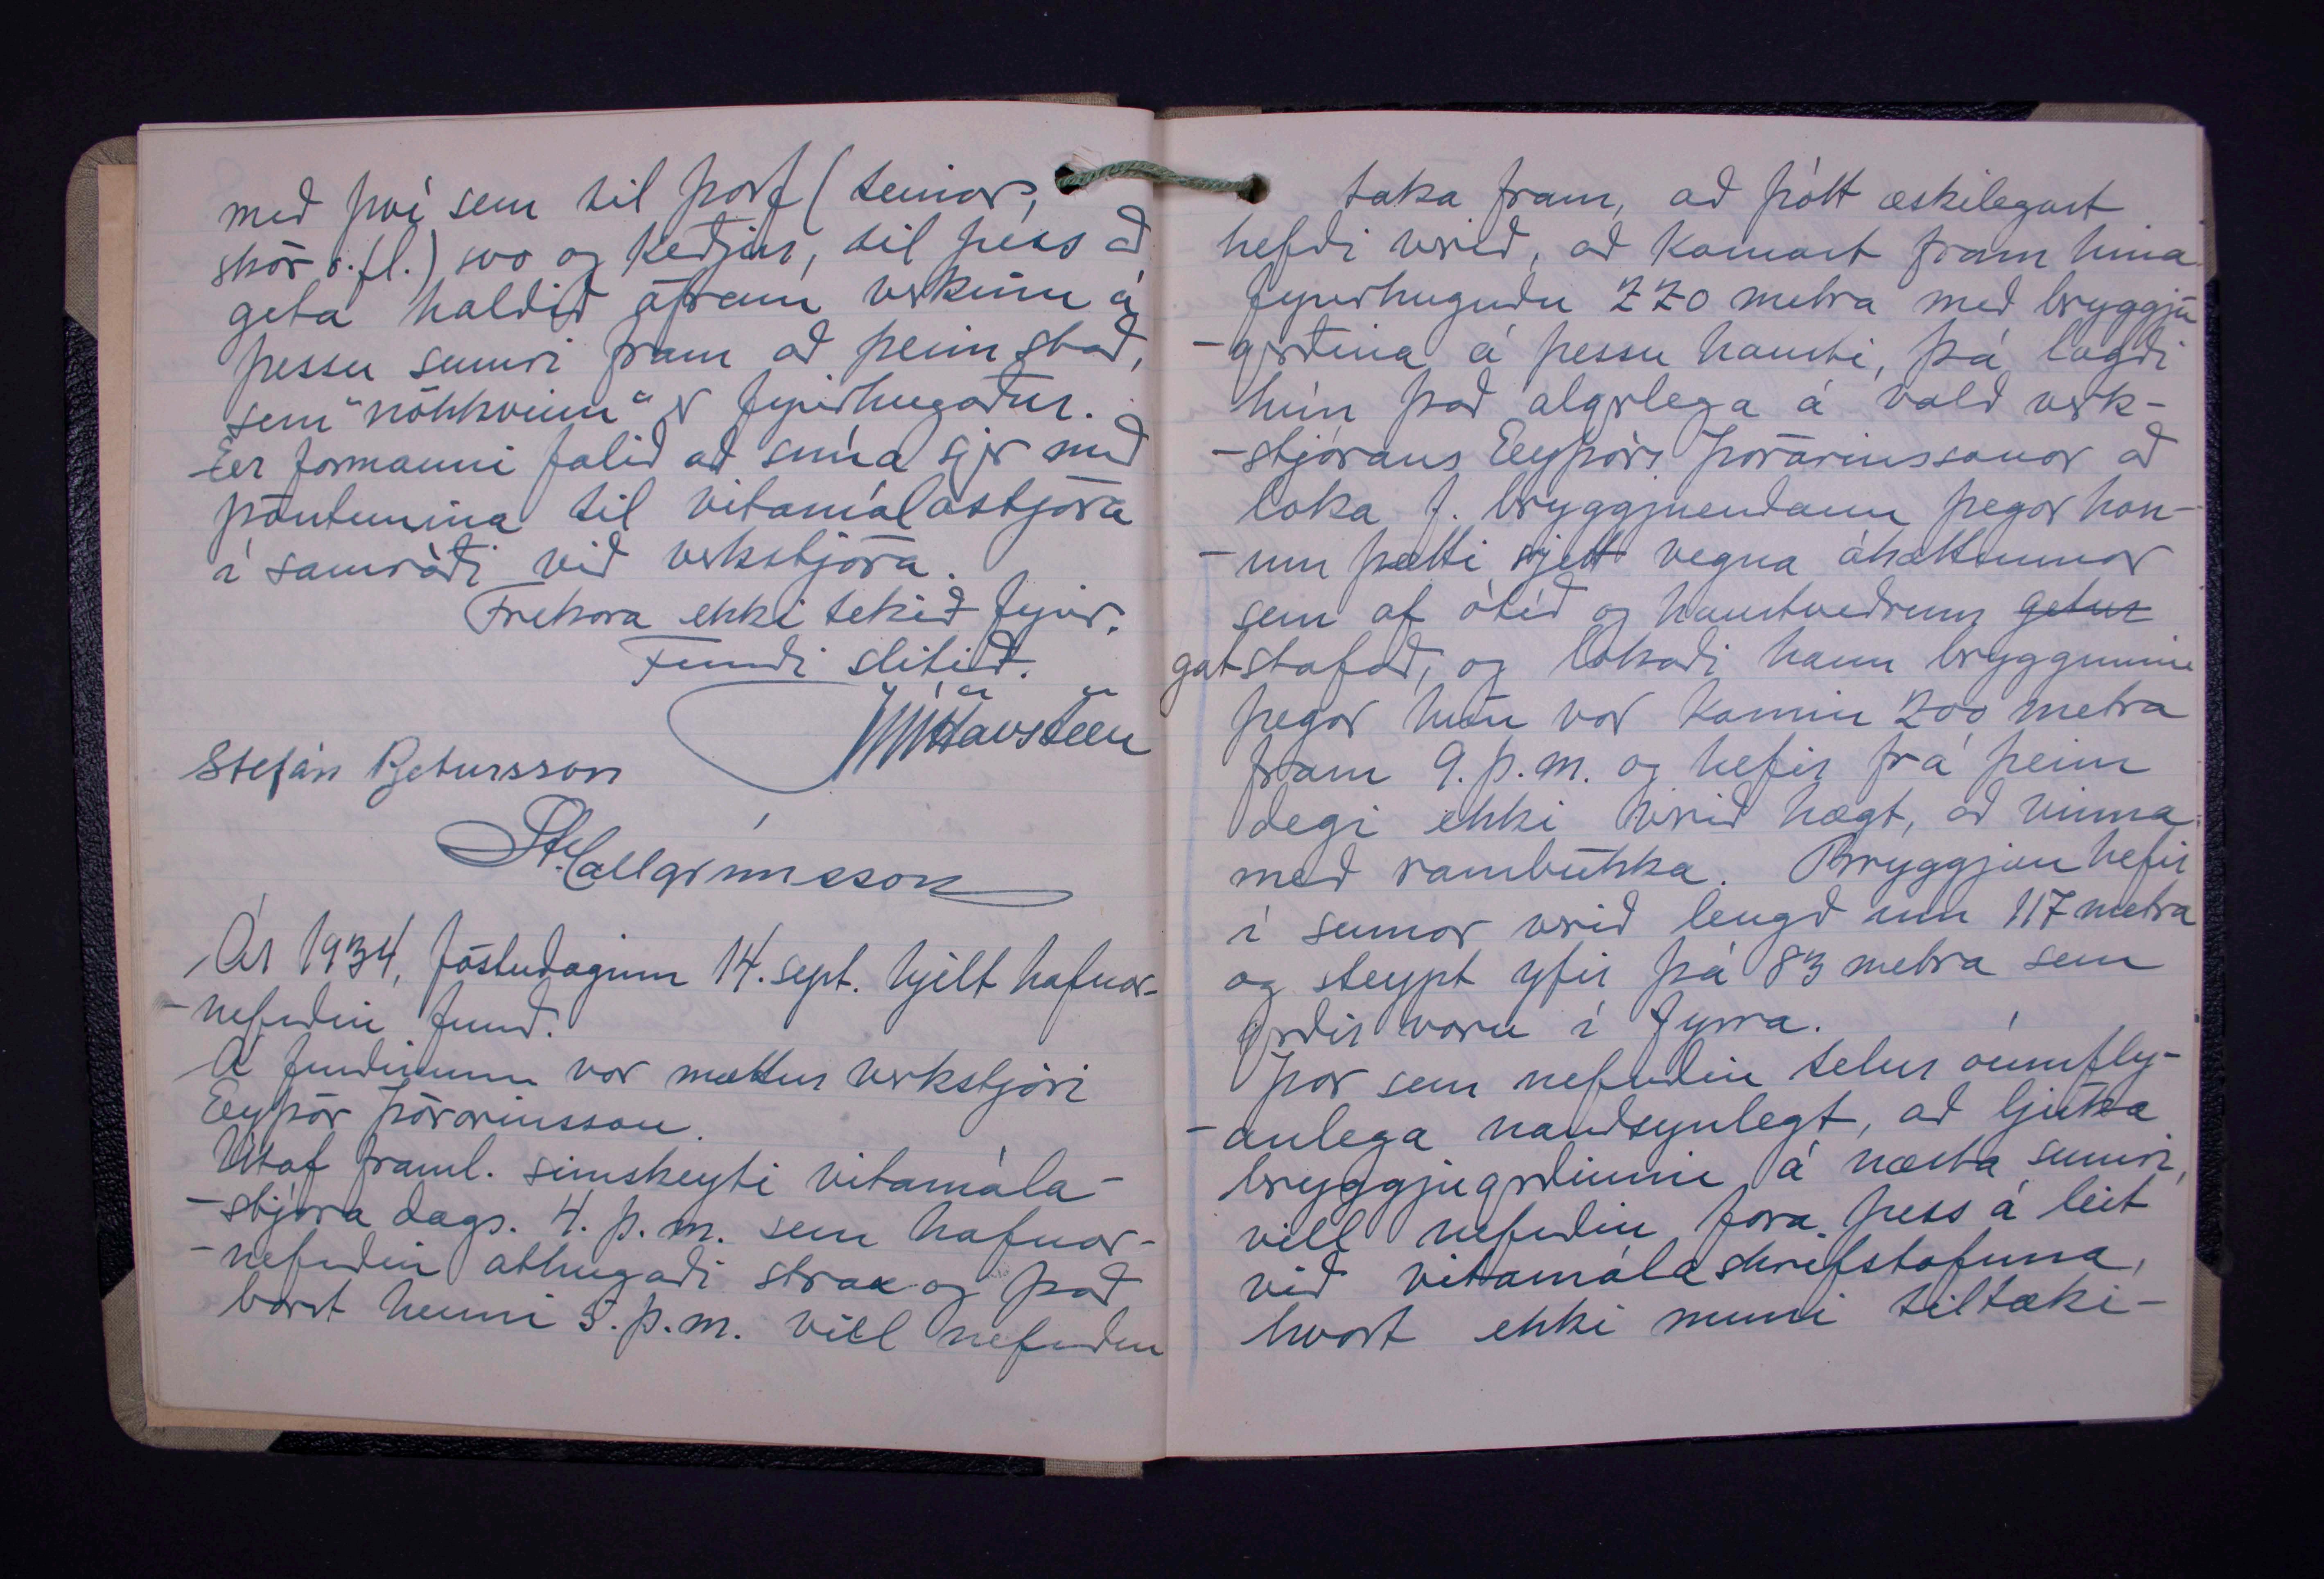 með því sem til þarf (teinar,
skór o.fl.) svo og keðjur, til þess að
geta haldið áfram verkinu á
þessu sumri fram að þeim stað,
sem "nökkvinn" er fyrirhugaður.
Er formanni falið að snúa sjer með
pöntunina til vitamálastjóra
í samráði við verkstjóra.
Frekara ekki tekið fyrir.
Fundi slitið.
Havsteen
Stefán Pjetursson
St. Hallgrímsson
Ár 1934, föstudaginn 14. sept. hjelt hafnar-
-nefndin fund.
Á fundinum var mættur verkstjóri
Eyþór Þórarinsson.
Útaf framl. símskeyti vitamála-
-stjóra dags. 4. þ.m. sem hafnar-
-nefndin athugaði strax og það
barst henni 5. þ.m. vill nefndin
taka fram, að þótt æskilegast
hefði verið, að komast fram hina
fyrirhuguðu 220 metra með bryggju
-gerðina á þessu hausti, þá lagði
hún það algerlega á vald verk-
-stjórans Eyþórs Þórarinssonar að
loka f. bryggjuendann þegar hon-
-um þætti rjett vegna áhættunnar
sem af ótíð og haustveðrum getur
gat stafað, og lokaði hann bryggunni
þegar hún var komin 200 metra
fram 9. þ.m. og hefir frá þeim
degi ekki verið hægt, að vinna
með rambúkka. Bryggjan hefir
í sumar verið lengd um 117 metra
og steypt yfir þá 83 metra sem
gerðir voru í fyrra.
Þar sem nefndin telur óumflý-
-anlega nauðsynlegt, að ljúka
bryggjugerðinni á næsta sumri,
vill nefndin fara þess á leit
við vitamálaskrifstofuna,
hvort ekki muni tiltæki-